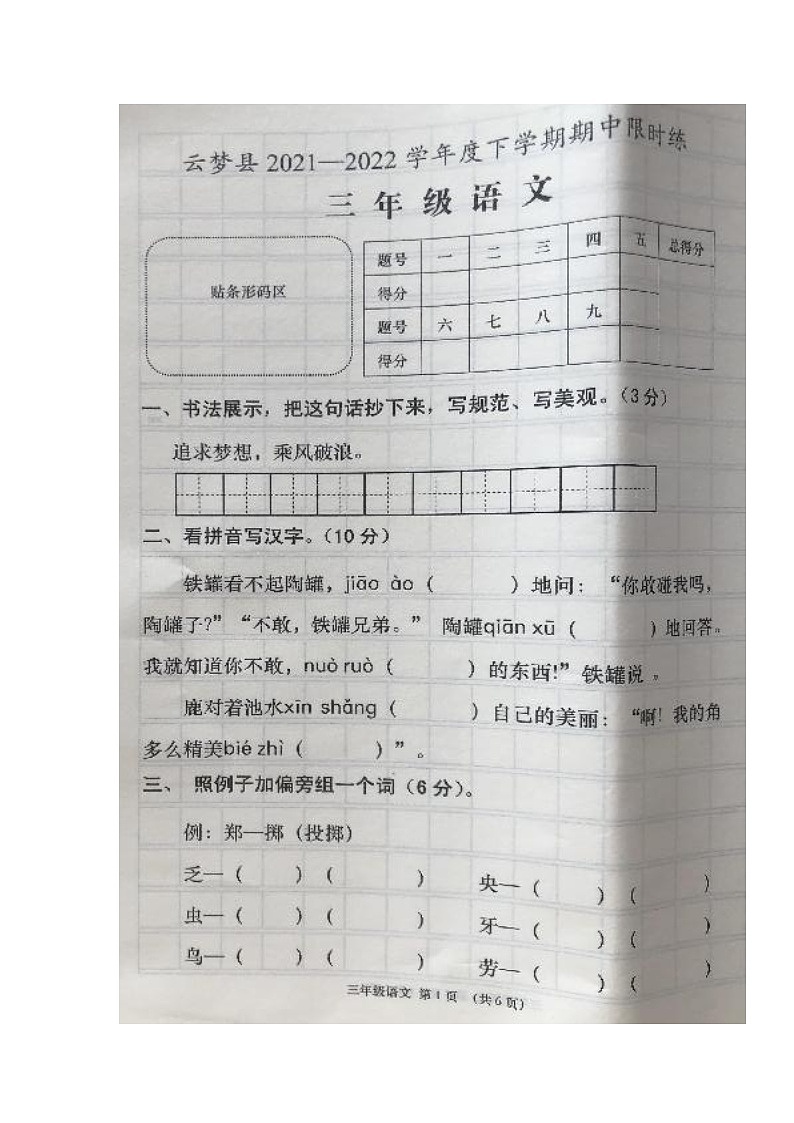 云梦县2021—2022学年度下学期期中限时练
三年级语文
贴条形码区
题号 一 二 三 四 五 总得分
得分
题号 六 七 八 九
得分
一、书法展示，把这句话抄下来，写规范、写美观。（3分）
追求梦想，乘风破浪。
二、看拼音写汉字。（10分）
铁罐看不起陶罐，jiāo ào（ ）地问：“你敢碰我吗，
陶罐了?”“不敢，铁罐兄弟。” 陶罐qiān xū（ ）地回答。
我就知道你不敢，nuò ruò（ ）的东西!”铁罐说 。
鹿对着池水xīn shǎng（ ）自己的美丽：“啊！我的角
多么精美bié zhì（ ）”。
三、 照例子加偏旁组一个词（6分）。
例：郑—掷（投掷）
乏—（ ）（ ） 央—（ ）（ ）
虫—（ ）（ ） 牙—（ ）（ ）
鸟—（ ）（ ） 劳—（ ）（ ）
三年级语文 第1页 （共6页）